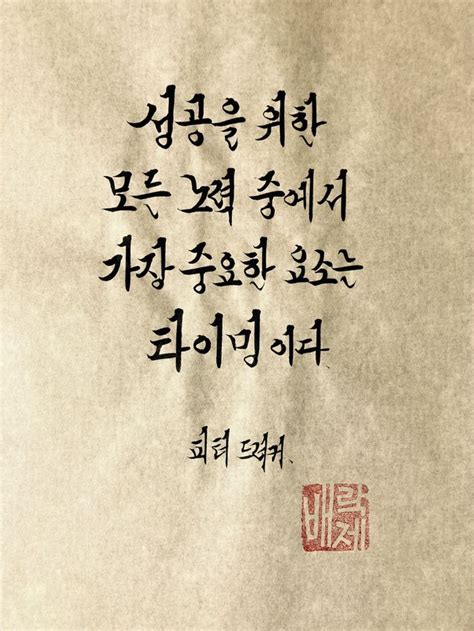 성공을 위한
모든 노력 중에서
가장 중요한 요소는
타이밍 이다.
피터 드러커.
배락제